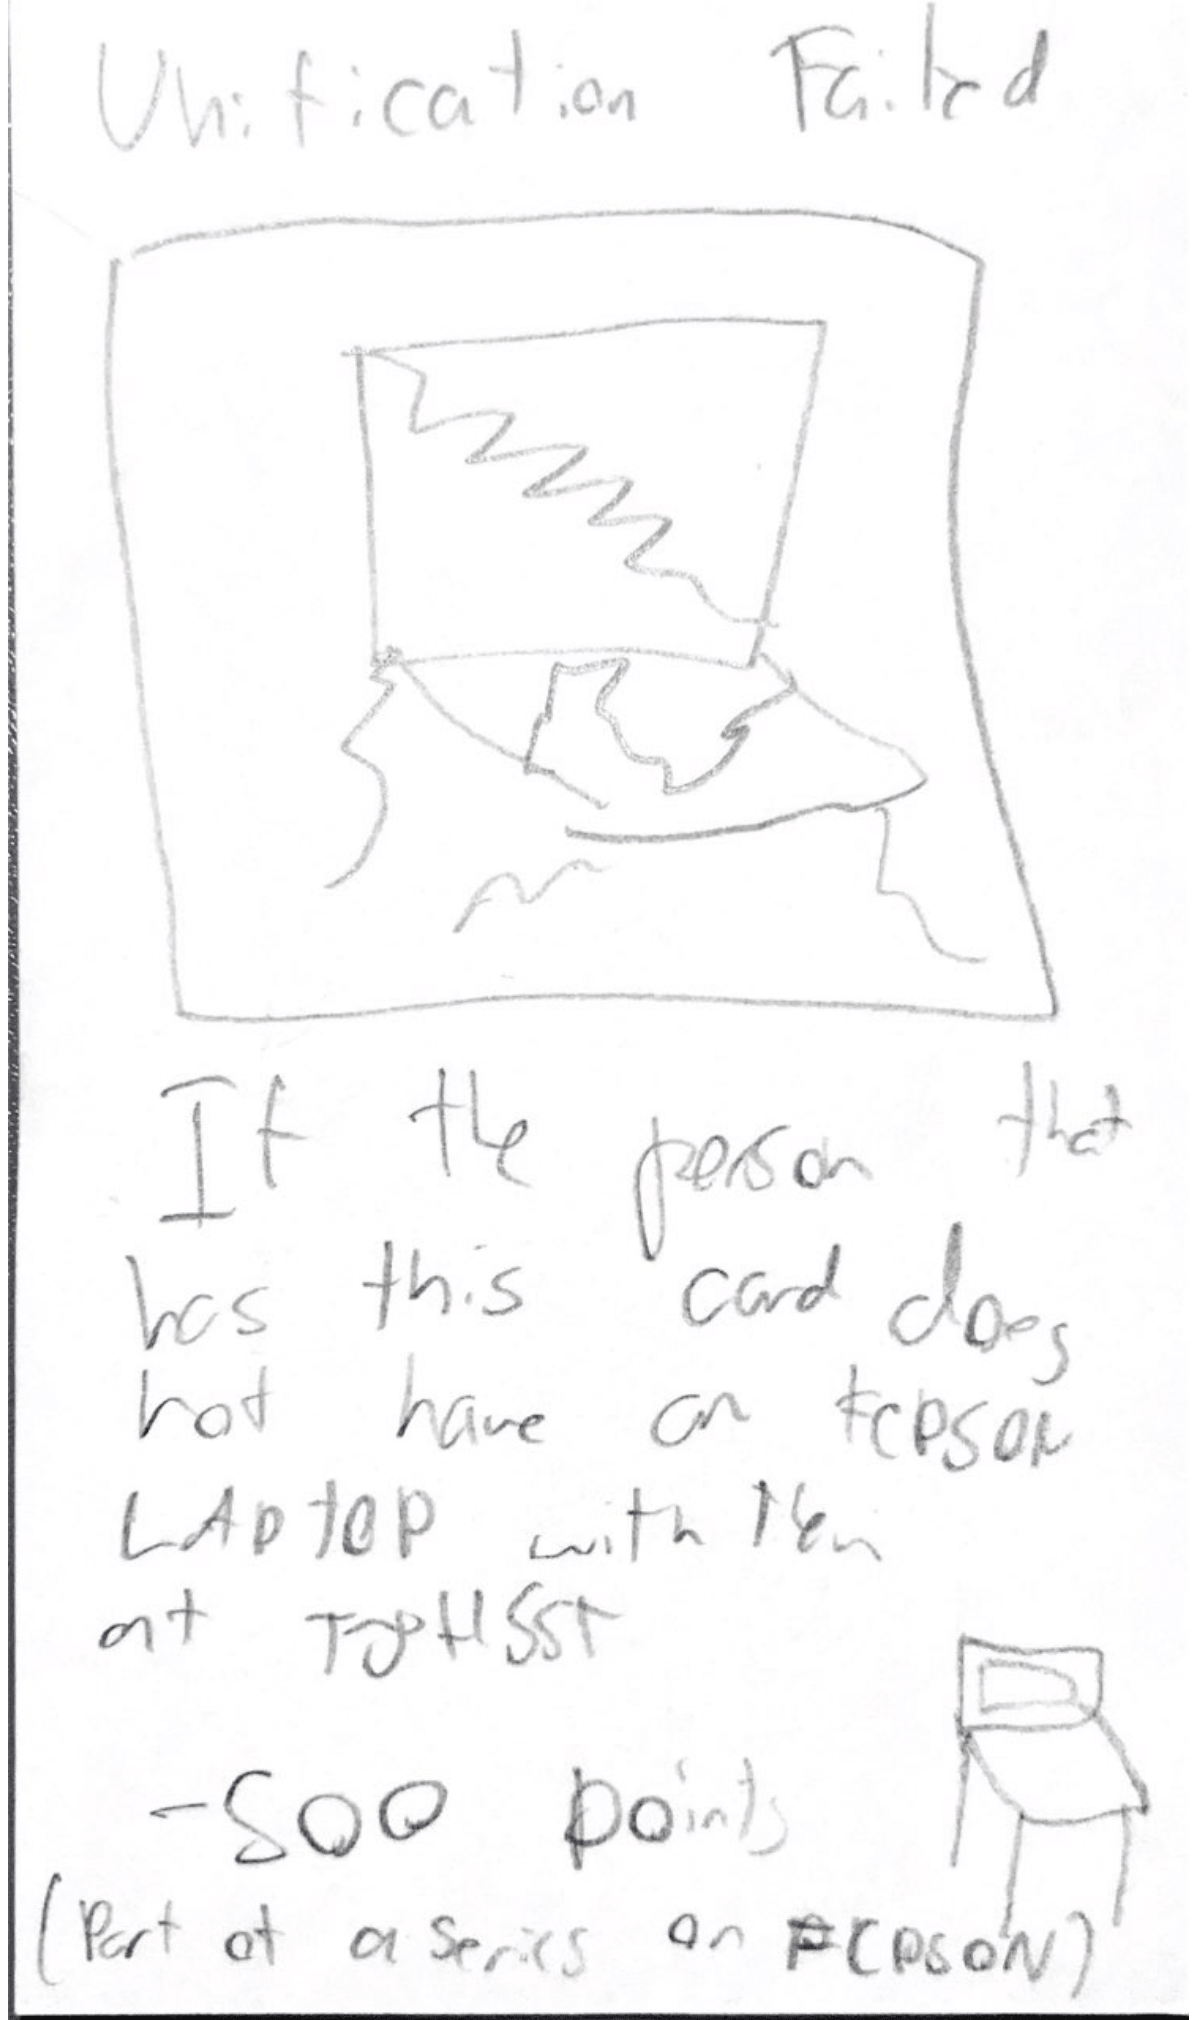 Unification Failed
If the person that
has this card does
not have an FCPSON
LAPtOP with them
at TJHSST
-500 points
(Part of a series on FCPSON)